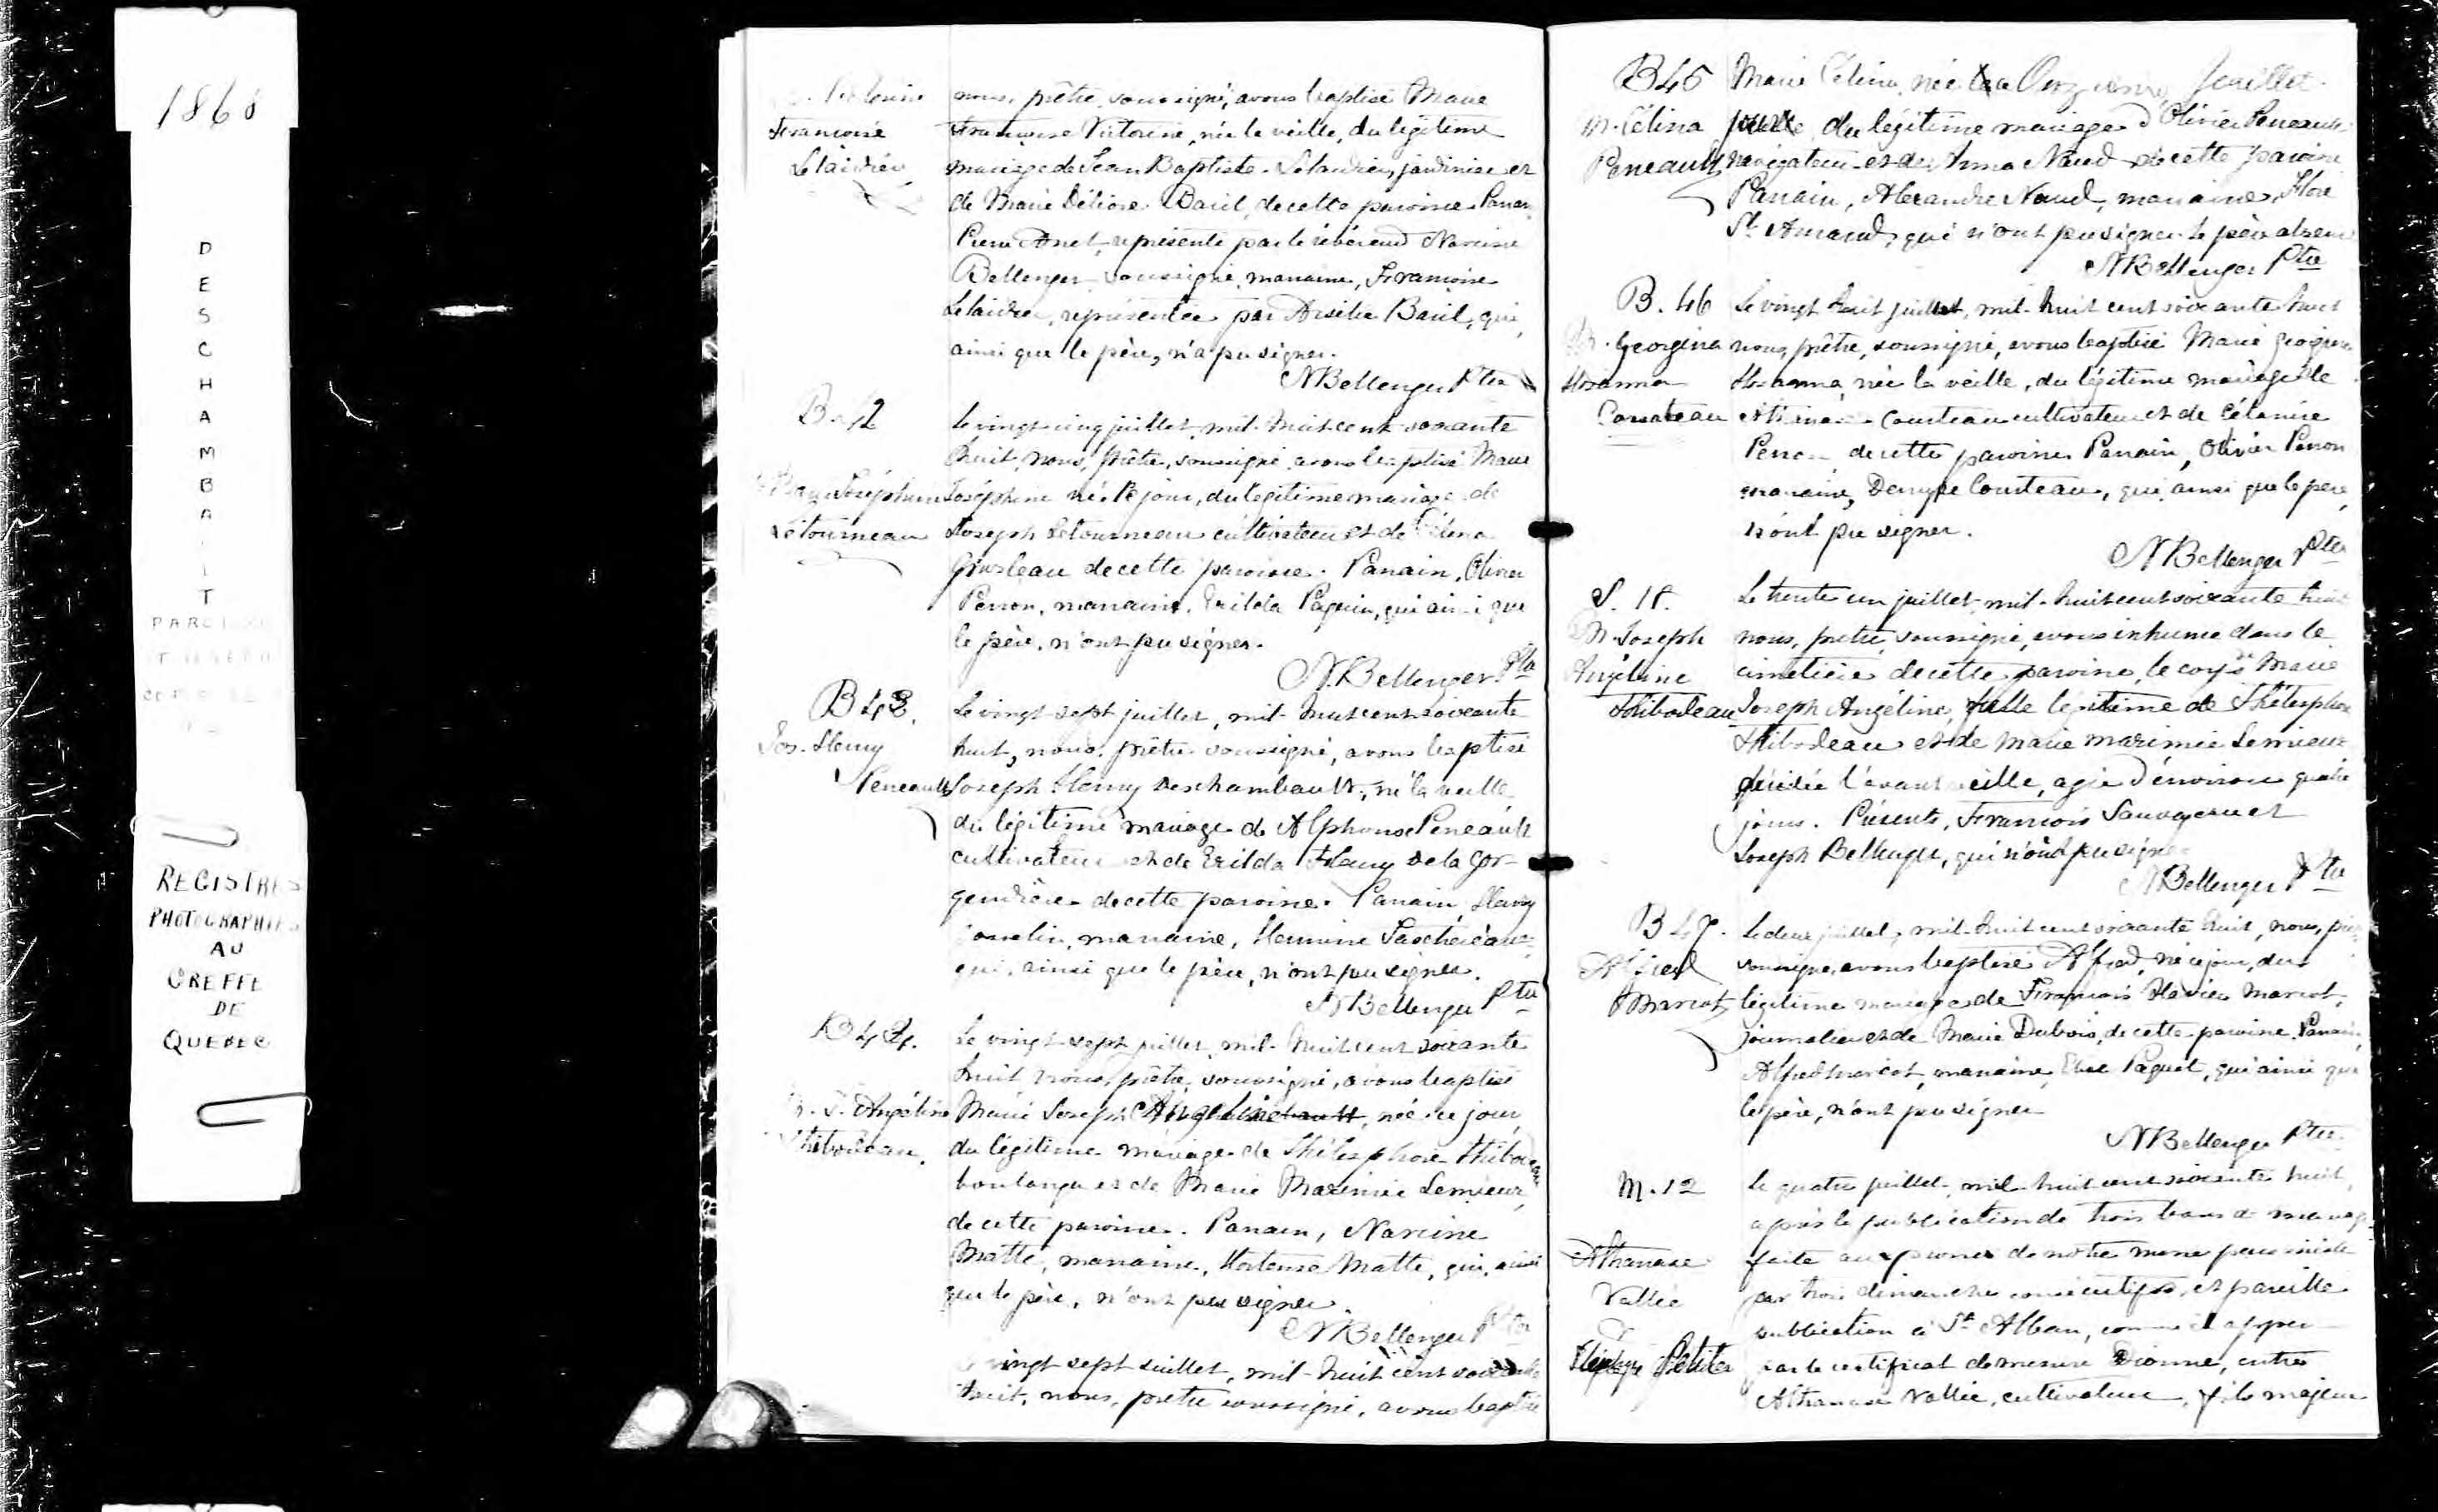 1868
DESCHAMBAULT
PAROISSE
ST JOSEPH
REGISTRES
PHOTOGRAPHIES
AU
GREFFE
DE
QUEBEC
Françoise
Letaidrie
nous, prêtre, soussigné, avons baptisé Marie
Françoise Victorine, née la veille, du légitime
mariage de Jean Baptiste jardinier et
de Marie Délière Baril, de cette paroisse Parrain
Pierre représenté par le révérend Narcisse
Bellenger soussigné, marraine, Françoise
représentée par Arsélie Baril, qui,
ainsi que le père, n'a pu signer.
NBellenger Ptre
B. 42
Marie Joséphine
Létourneau
Le vingt-cinq juillet, mil-huit-cent-soixante
huit, nous, prêtre, soussigné, avons baptisé Marie
Joséphine née ce jour, du légitime mariage de
Joseph Létourneau cultivateur et de
de cette paroisse. Parrain, Olivier
Perron, marraine, Exilda Paquin, qui ainsi que
le père, n'ont pu signer.
N.Bellenger Ptre
B 43.
Jos. Henry
Peneault
Le vingt-sept juillet, mil-huit cent soixante
huit, nous, prêtre soussigné, avons baptisé
Joseph Henry Deschambault, né la veille
du légitime mariage de Alphonse Peneault
cultivateur et de Exilda Fleury de la Gor-
gendière de cette paroisse. Parrain, Henry
marraine, Hermine Taschereau
qui, ainsi que le père, n'ont pu signer.
NBellenger Ptre
B 44.
M. J. Angéline
Thibodeau.
Le vingt-sept juillet, mil-huit cent soixante
huit nous, prêtre, soussigné, avons baptisé
Marie Joseph Angéline, née ce jour,
du légitime mariage de Thélesphore Thibodeau
boulanger et de Marie Maximie Lemieux,
de cette paroisse. Parrain, Narcisse
Matte, marraine, Hortense Matte, qui, ainsi
que le père, n'ont pu signer.
NBellenger Ptre
Le vingt sept juillet, mil-huit cent soixante
huit, nous, prêtre soussigné, avons baptisé
B45
M. Célina
Peneault
Marie Célina, née le juillet
du légitime mariage d'Olivier Peneault
navigateur et de Anna Naud de cette paroisse
Parrain, Alexandre Naud, marraine, Flore
St Amand, qui n'ont pu signer le père absent
NBellenger Ptre
B. 46
M. Georgina
Hosanna
Courteau
Le vingt huit juillet, mil-huit cent soixante huit
nous, prêtre, soussigné, avons baptisé Marie Georgina
Hosanna, née la veille, du légitime mariage de
Courteau cultivateur et de Célanire
Perron de cette paroisse Parrain, Olivier Perron
marraine, Courteau, qui, ainsi que le père,
n'ont pu signer.
NBellenger Ptre
S. 18.
M. Joseph
Angéline
Thibodeau
Le trente un juillet, mil-huit cent soixante huit
nous, prêtre, soussigné, avons inhumé dans le
cimetière de cette paroisse, le corps de Marie
Joseph Angéline, fille légitime de Thélesphore
Thibodeau et de Marie Maximie Lemieux
décédée l'avant veille, agée d'environ quatre
jours. Présents, François Sauvageau et
Joseph Bellenger, qui n'ont pu signer
NBellenger Ptre
B 47.
Alfred
Marcot
Le deux juillet, mil-huit cent soixante huit, nous, prêtre
soussigné, avons baptisé Alfred, né ce jour, du
légitime mariage de François Xavier Marcot,
journalier et de Marie Dubois, de cette paroisse. Parrain,
Alfred Marcot, marraine, Elise Paquet, qui ainsi que
le père, n'ont pu signer
NBellenger Ptre
M. 12
Athanase
Vallée
&
Petite
Le quatre juillet, mil-huit cent soixante huit,
après la publication de trois bans de mariage
faite aux prones de notre messe paroissiale
par trois dimanches consécutifs, et pareille
publication à St Alban, comme il appert
par le certificat de messire Dionne, entre
Athanase Vallée, cultivateur, fils majeur